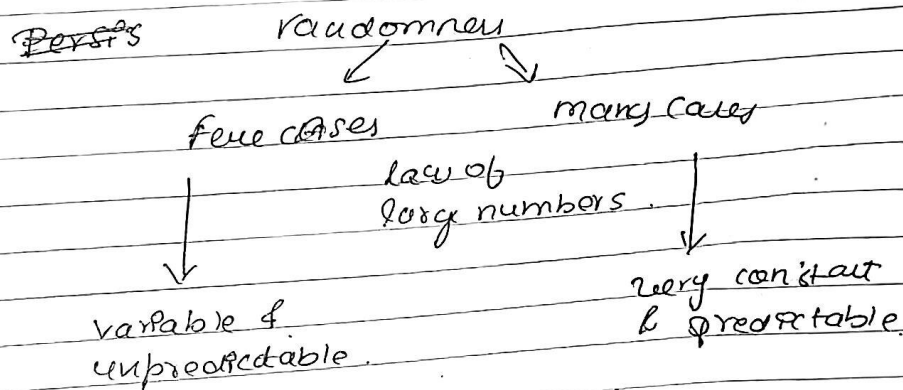 randomness
few cases
many cases
law of
large numbers.
variable &
unpredictable.
very constant
& predictable.